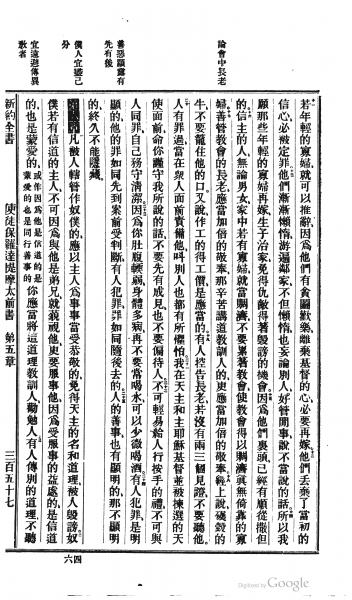 若年輕的寡婦就可以推辭因爲他們有貪圖歡樂離棄基督的心必要再嫁他們丟棄了當初的
信心必被定罪他們漸漸懶惰游遍鄰家不但懶惰也妄論別人好管閒事說不當說的話所以我
願那些年輕的寡婦再嫁生子治家免得仇敵得著毀謗的機會因爲他們裏頭已經有順從撒但
的信主的人無論男女家中若有寡婦就當賙濟不要累著教會使教會得以賙濟眞無倚靠的寡
婦善管教會的長老應當加倍的敬奉那辛苦講道教訓人的更應當加倍的敬奉經上說碾穀的
牛不要籠住他的口又說作工的得工價是應當的有人控告長老若沒有兩三個見證不要聽他
人有罪過當在衆人面前責備他叫別人也都有所懼怕我在天主和主耶穌基督並被揀選的天
使面前命你謹守我所說的話不要先有成見也不要偏待人不可輕易給人行按手的禮不可與
人同罪自己務守清潔因爲你肚腹軟弱身體多病再不要常喝水可以少微喝酒有人犯罪是明
顯的他的罪如同先到案前受判斷有人犯罪罪如同隨後去的人的善事也有顯明的那不顯明
的終久不能隱藏
凡被人轄管作奴僕的應以主人爲事事當受恭敬的免得天主的名和道理被人毀謗奴
僕若有信道的主人不可因爲與他是弟兄就藐視他更要服事他因爲受服事的益處的是信道
的也是蒙愛的或作因爲他是信道的是蒙愛的也是同行善事的你應當將這道理教訓人勸勉人有人傳別的道理不聽
論會中長老
善惡顯露有先有後
僕人宜盡己分
宜遠避傳異敎者
新約全書 使徒保羅達提摩太前書 第五章 三百五十七
六四
Digitized by Google